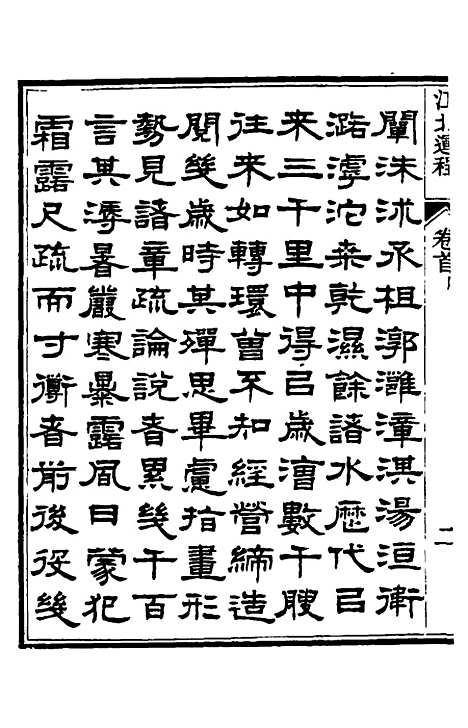 江北運程 卷首 二
闡洙沭承柤郭灘漳淇湯洹衛
潞滹沱桑乾濕餘諸水歷代㠯
来三千里中得㠯歲漕數千艘
往来如轉環曾不知經營締造
閱幾歲時其殫思畢慮指畫形
勢見諸章疏論說者累幾千百
言其溽暑嚴寒暴露風日蒙犯
霜露尺疏而寸衟者前後役幾